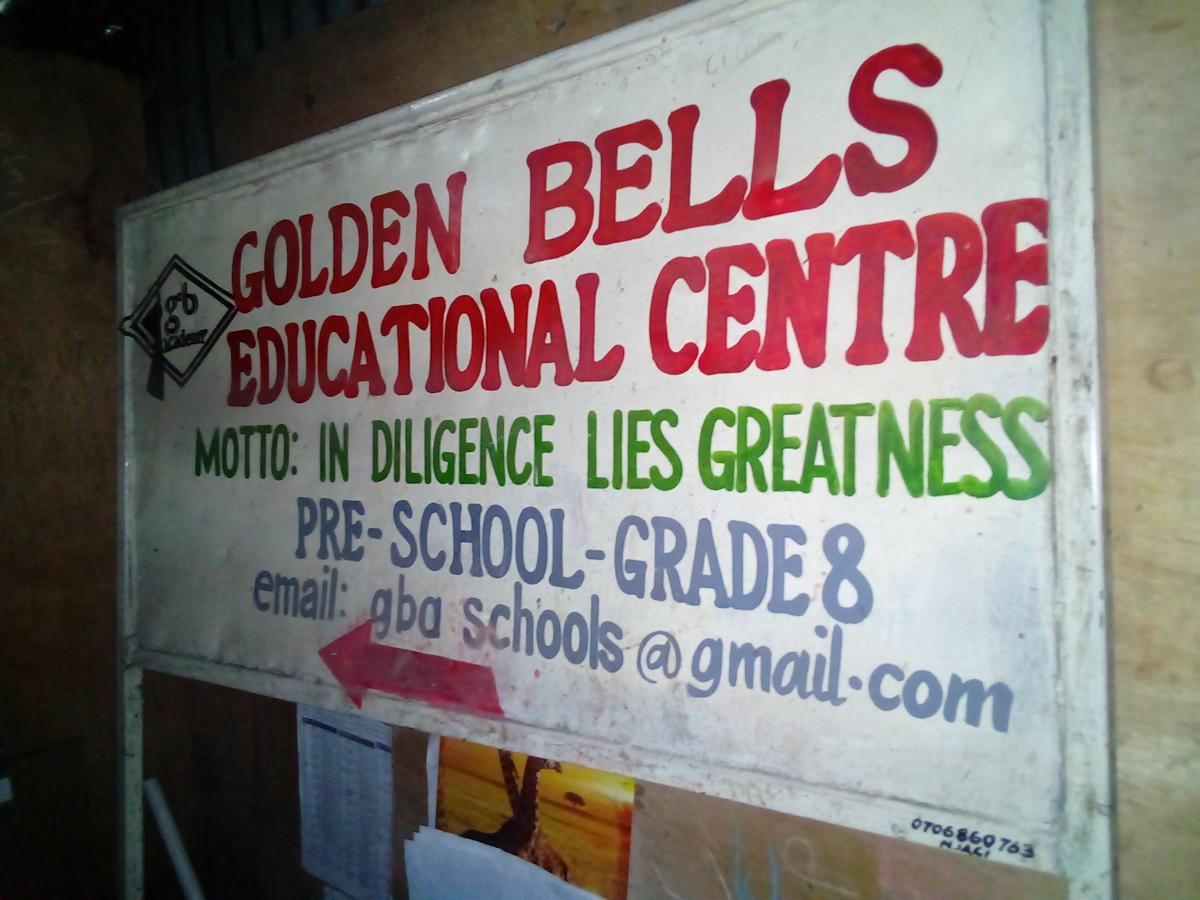 gb
academy
GOLDEN BELLS
EDUCATIONAL CENTRE
MOTTO: IN DILIGENCE LIES GREATNESS
PRE-SCHOOL-GRADE 8
email: gba schools@gmail.com
0706860763
NJAGI